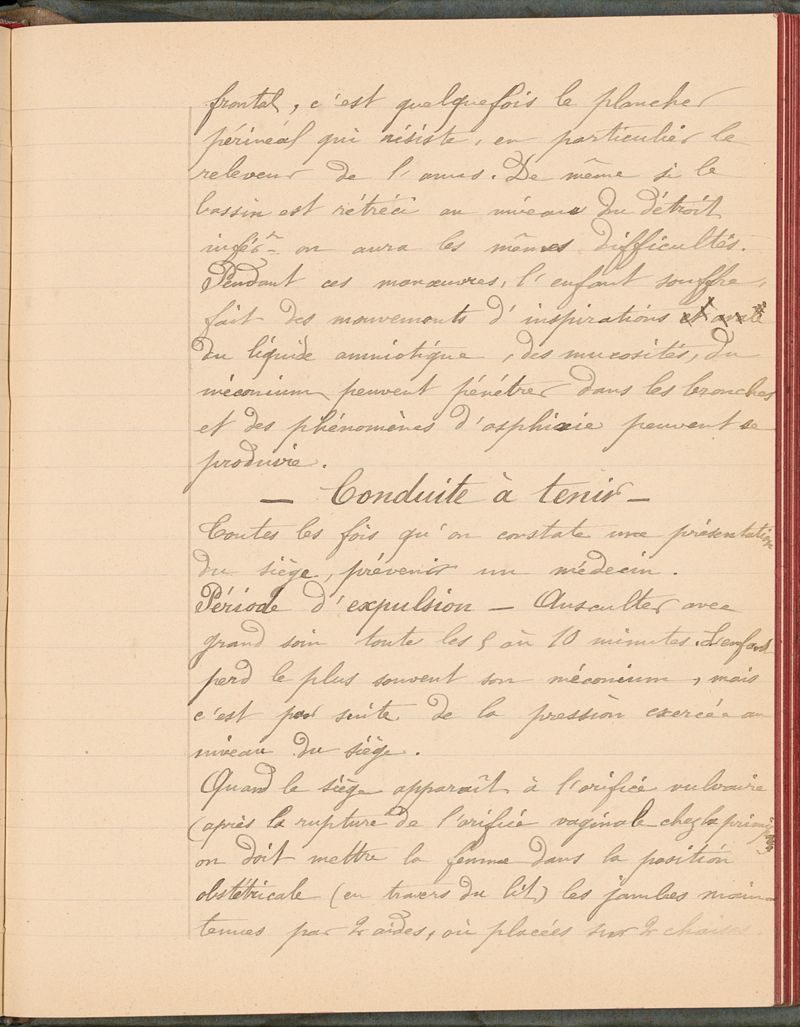 frontal, c'est quelquefois le plancher
périnéal qui résiste, en particulier le
releveur de l'anus. De même si le
bassin est rétréci au niveau du détroit
infér^r on aura les mêmes difficultés.
Pendant ces manœuvres, l'enfant souffre,
fait des mouvements d'inspirations et avale
du liquide amniotique, des mucosités, du
méconium peuvent pénétrer dans les bronches
et des phénomènes d'asphixie peuvent se
produire.
— Conduite à tenir —
Toutes les fois qu'on constate une présentation
du siège, prévenir un médecin.
Période d'expulsion — Ausculter avec
grand soin toute les 5 ou 10 minutes. L'enfant
perd le plus souvent son méconium, mais
c'est par suite de la pression exercée au
niveau du siège.
Quand le siège apparaît à l'orifice vulvaire
(après la rupture de l'orifice vaginale chez la
on doit mettre la femme dans la position
obstétricale (en travers du lit) les jambes main-
tenues par 2 aides, où placées sur 2 chaises.